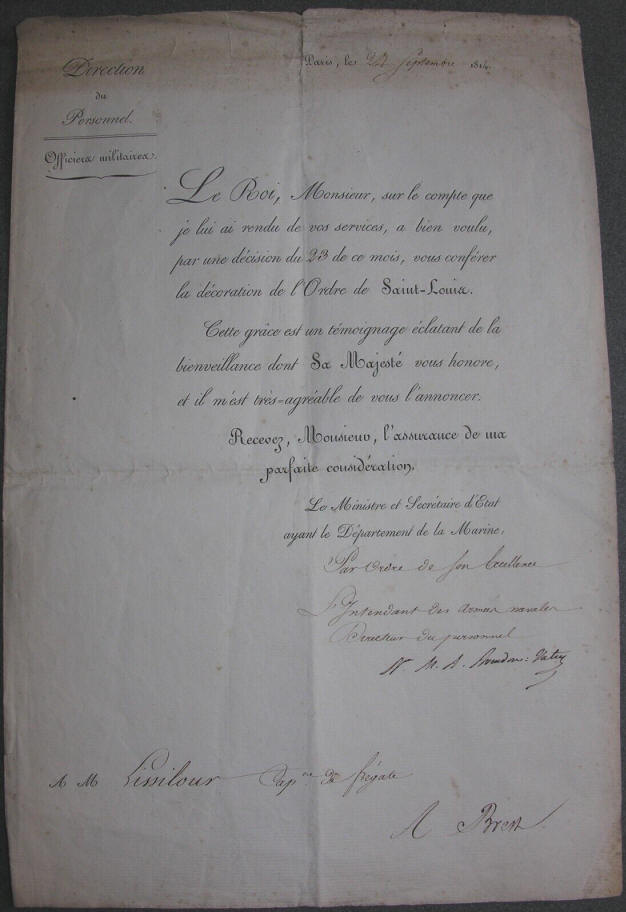 Direction
du
Personnel.
Officiers militaires.
Paris, le Septembre 1814.
Le Roi, Monsieur, sur le compte que
je lui ai rendu de vos services, a bien voulu,
par une décision du 23 de ce mois, vous conférer
la décoration de l'Ordre de Saint-Louis.
Cette grâce est un témoignage éclatant de la
bienveillance dont Sa Majesté vous honore,
et il m'est très-agréable de vous l'annoncer.
Recevez, Monsieur, l'assurance de ma
parfaite considération.
Le Ministre et Secrétaire d'Etat
ayant le Département de la Marine,
Par ordre de son Excellence
L'Intendant des armées navales
Directeur du personnel
A M Lissilour Cap.ne de frégate
A Brest.